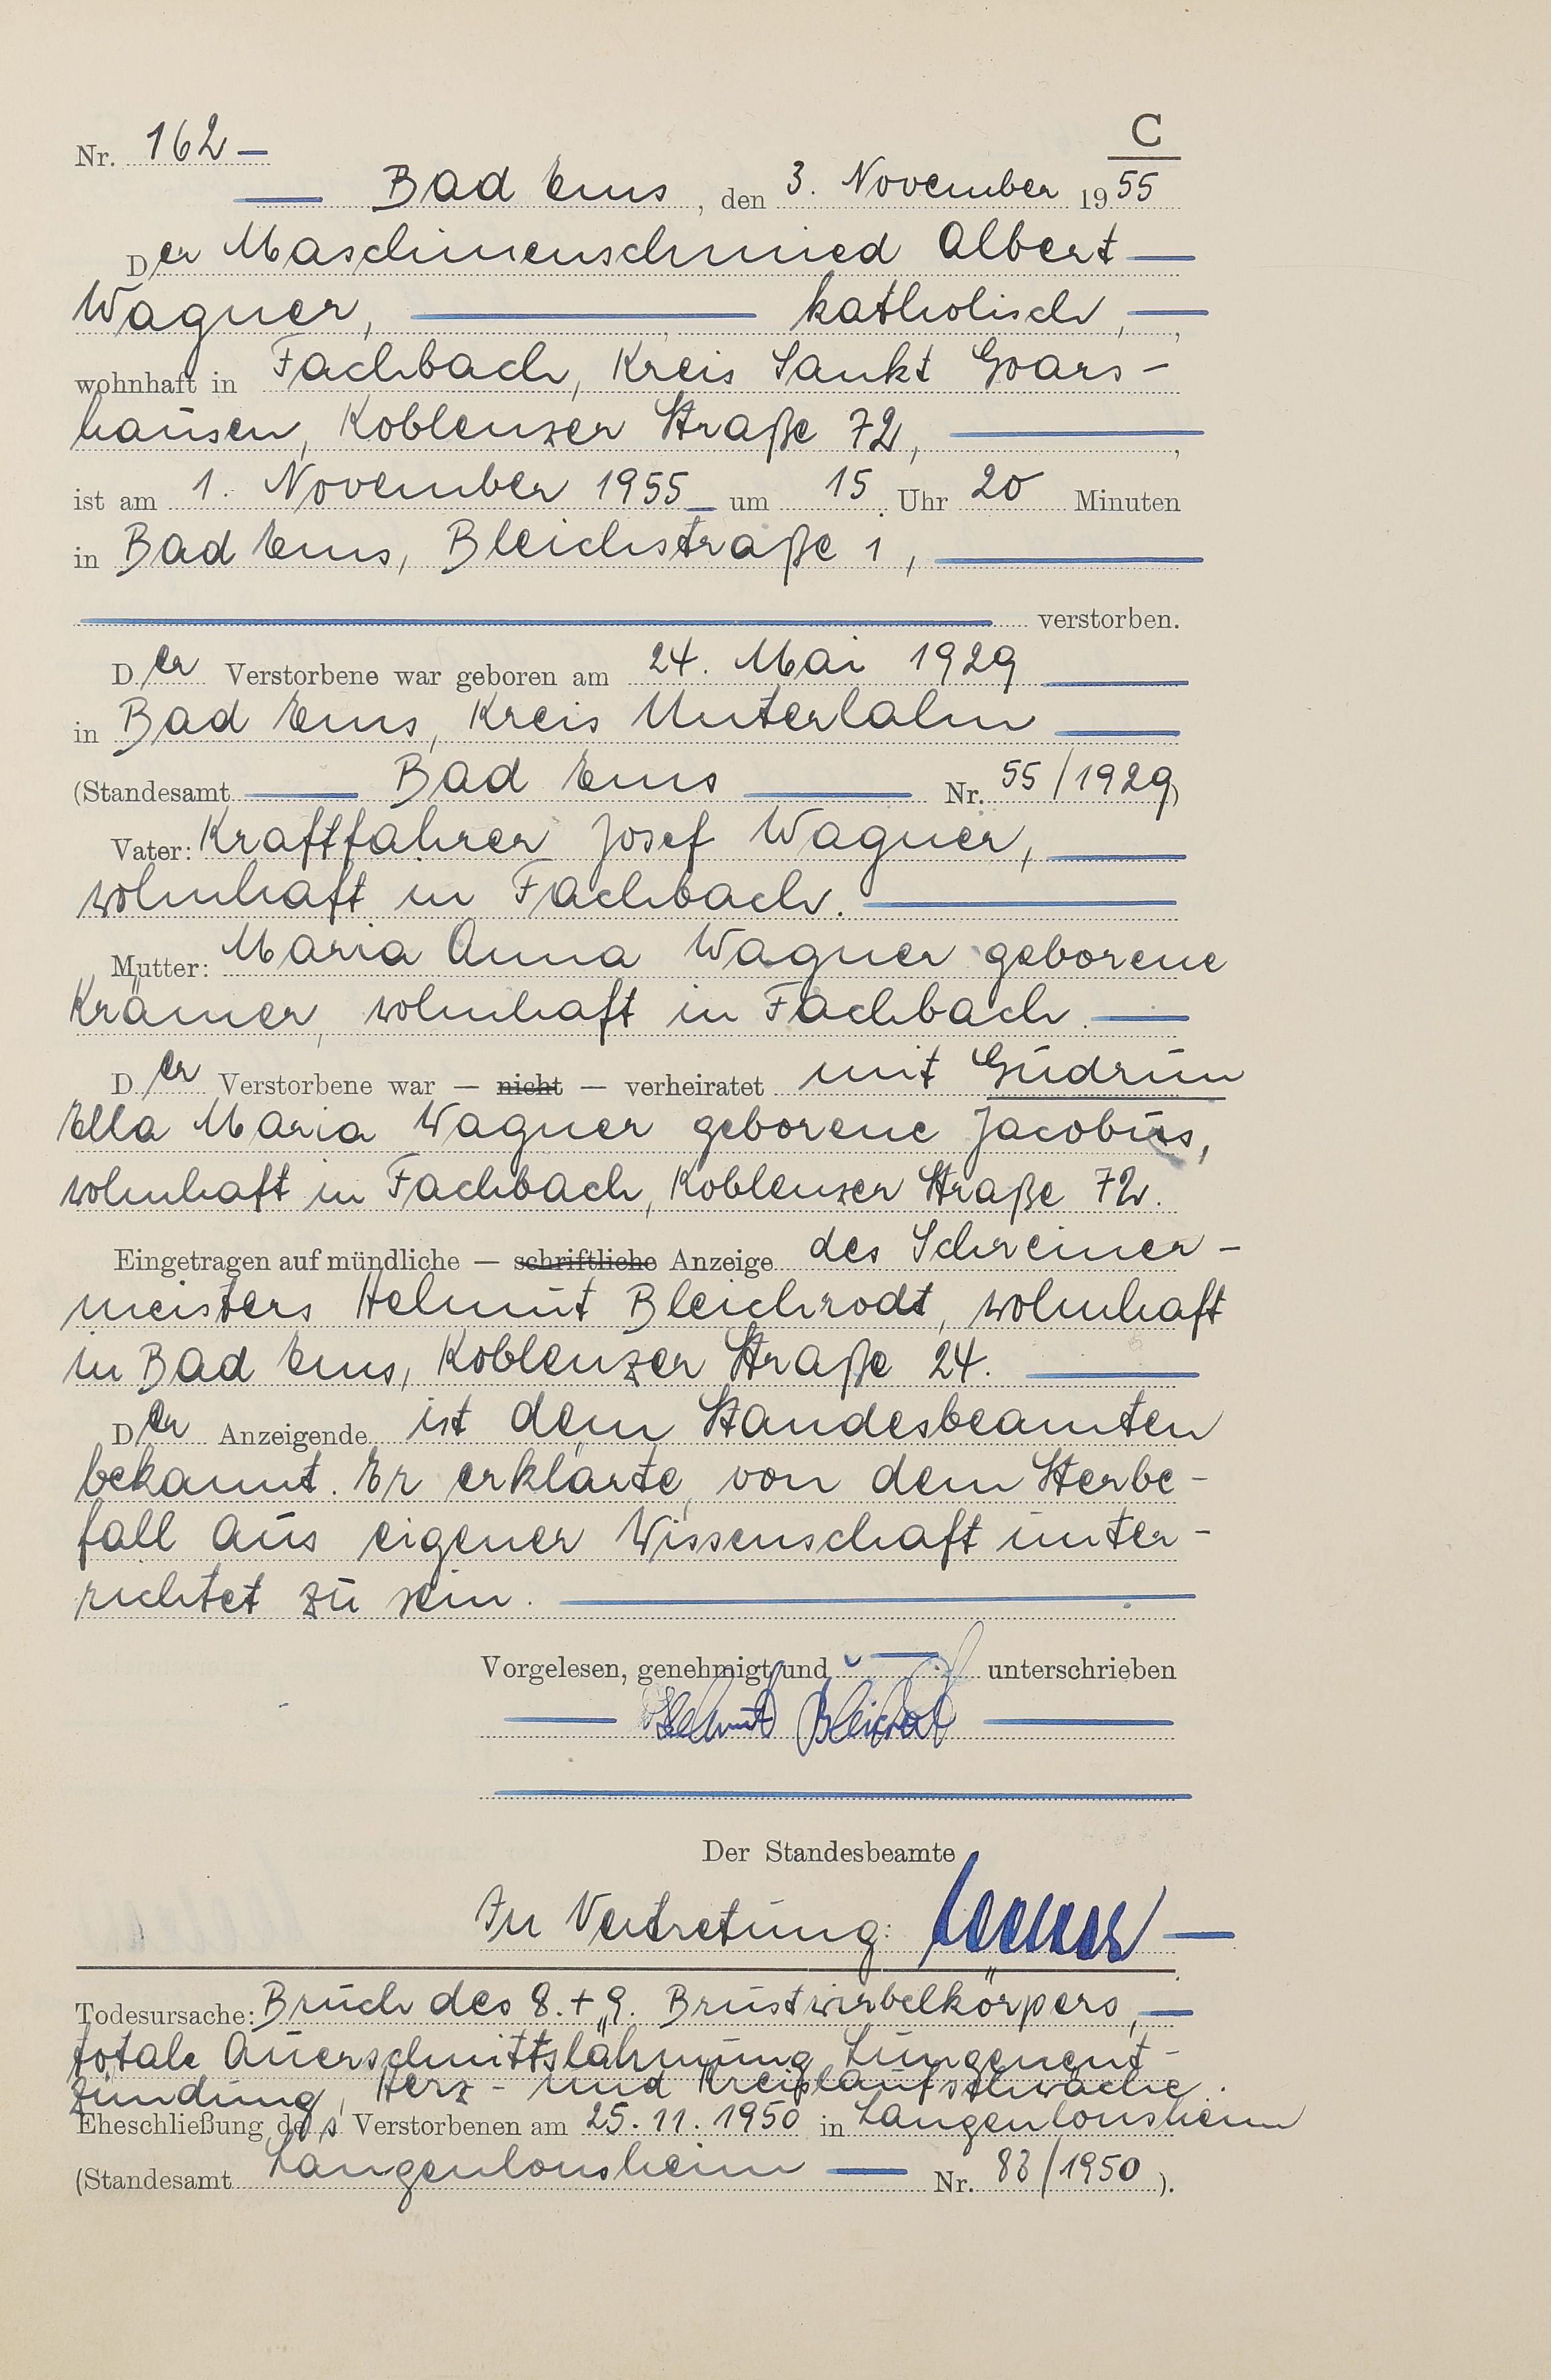 C
Nr. 162
Bad Ems, den 3. November 1955
Der Maschinenschmied Albert
Wagner, katholisch,
wohnhaft in Fachbach, Kreis Sankt Goars-
hausen, Koblenzer Straße 72,
ist am 1. November 1955 um 15 Uhr 20 Minuten
in Bad Ems, Bleichstraße 1,
verstorben.
Der Verstorbene war geboren am 24. Mai 1929
in Bad Ems, Kreis Unterlahn
(Standesamt Bad Ems Nr. 55/1929)
Vater: Kraftfahrer Josef Wagner,
wohnhaft in Fachbach.
Mutter: Maria Anna Wagner geborene
Krämer, wohnhaft in Fachbach.
Der Verstorbene war — nicht — verheiratet mit Gudrun
Ella Maria Wagner geborene Jacobus,
wohnhaft in Fachbach, Koblenzer Straße 72.
Eingetragen auf mündliche — schriftliche Anzeige des Schreiner-
meisters Helmut Bleichrodt, wohnhaft
in Bad Ems, Koblenzer Straße 24.
Der Anzeigende ist dem Standesbeamten
bekannt. Er erklärte, von dem Sterbe-
fall aus eigener Wissenschaft unter-
richtet zu sein.
Vorgelesen, genehmigt und unterschrieben
Helmut Bleichrodt
Der Standesbeamte
In Vertretung:
Todesursache: Bruch des 8. + 9. Brustwirbelkörpers,
totale Querschnittslähmung, Lungenent-
zündung, Herz- und Kreislaufschwäche.
Eheschließung des Verstorbenen am 25.11.1950 in Langenlonsheim
(Standesamt Langenlonsheim Nr. 83/1950).